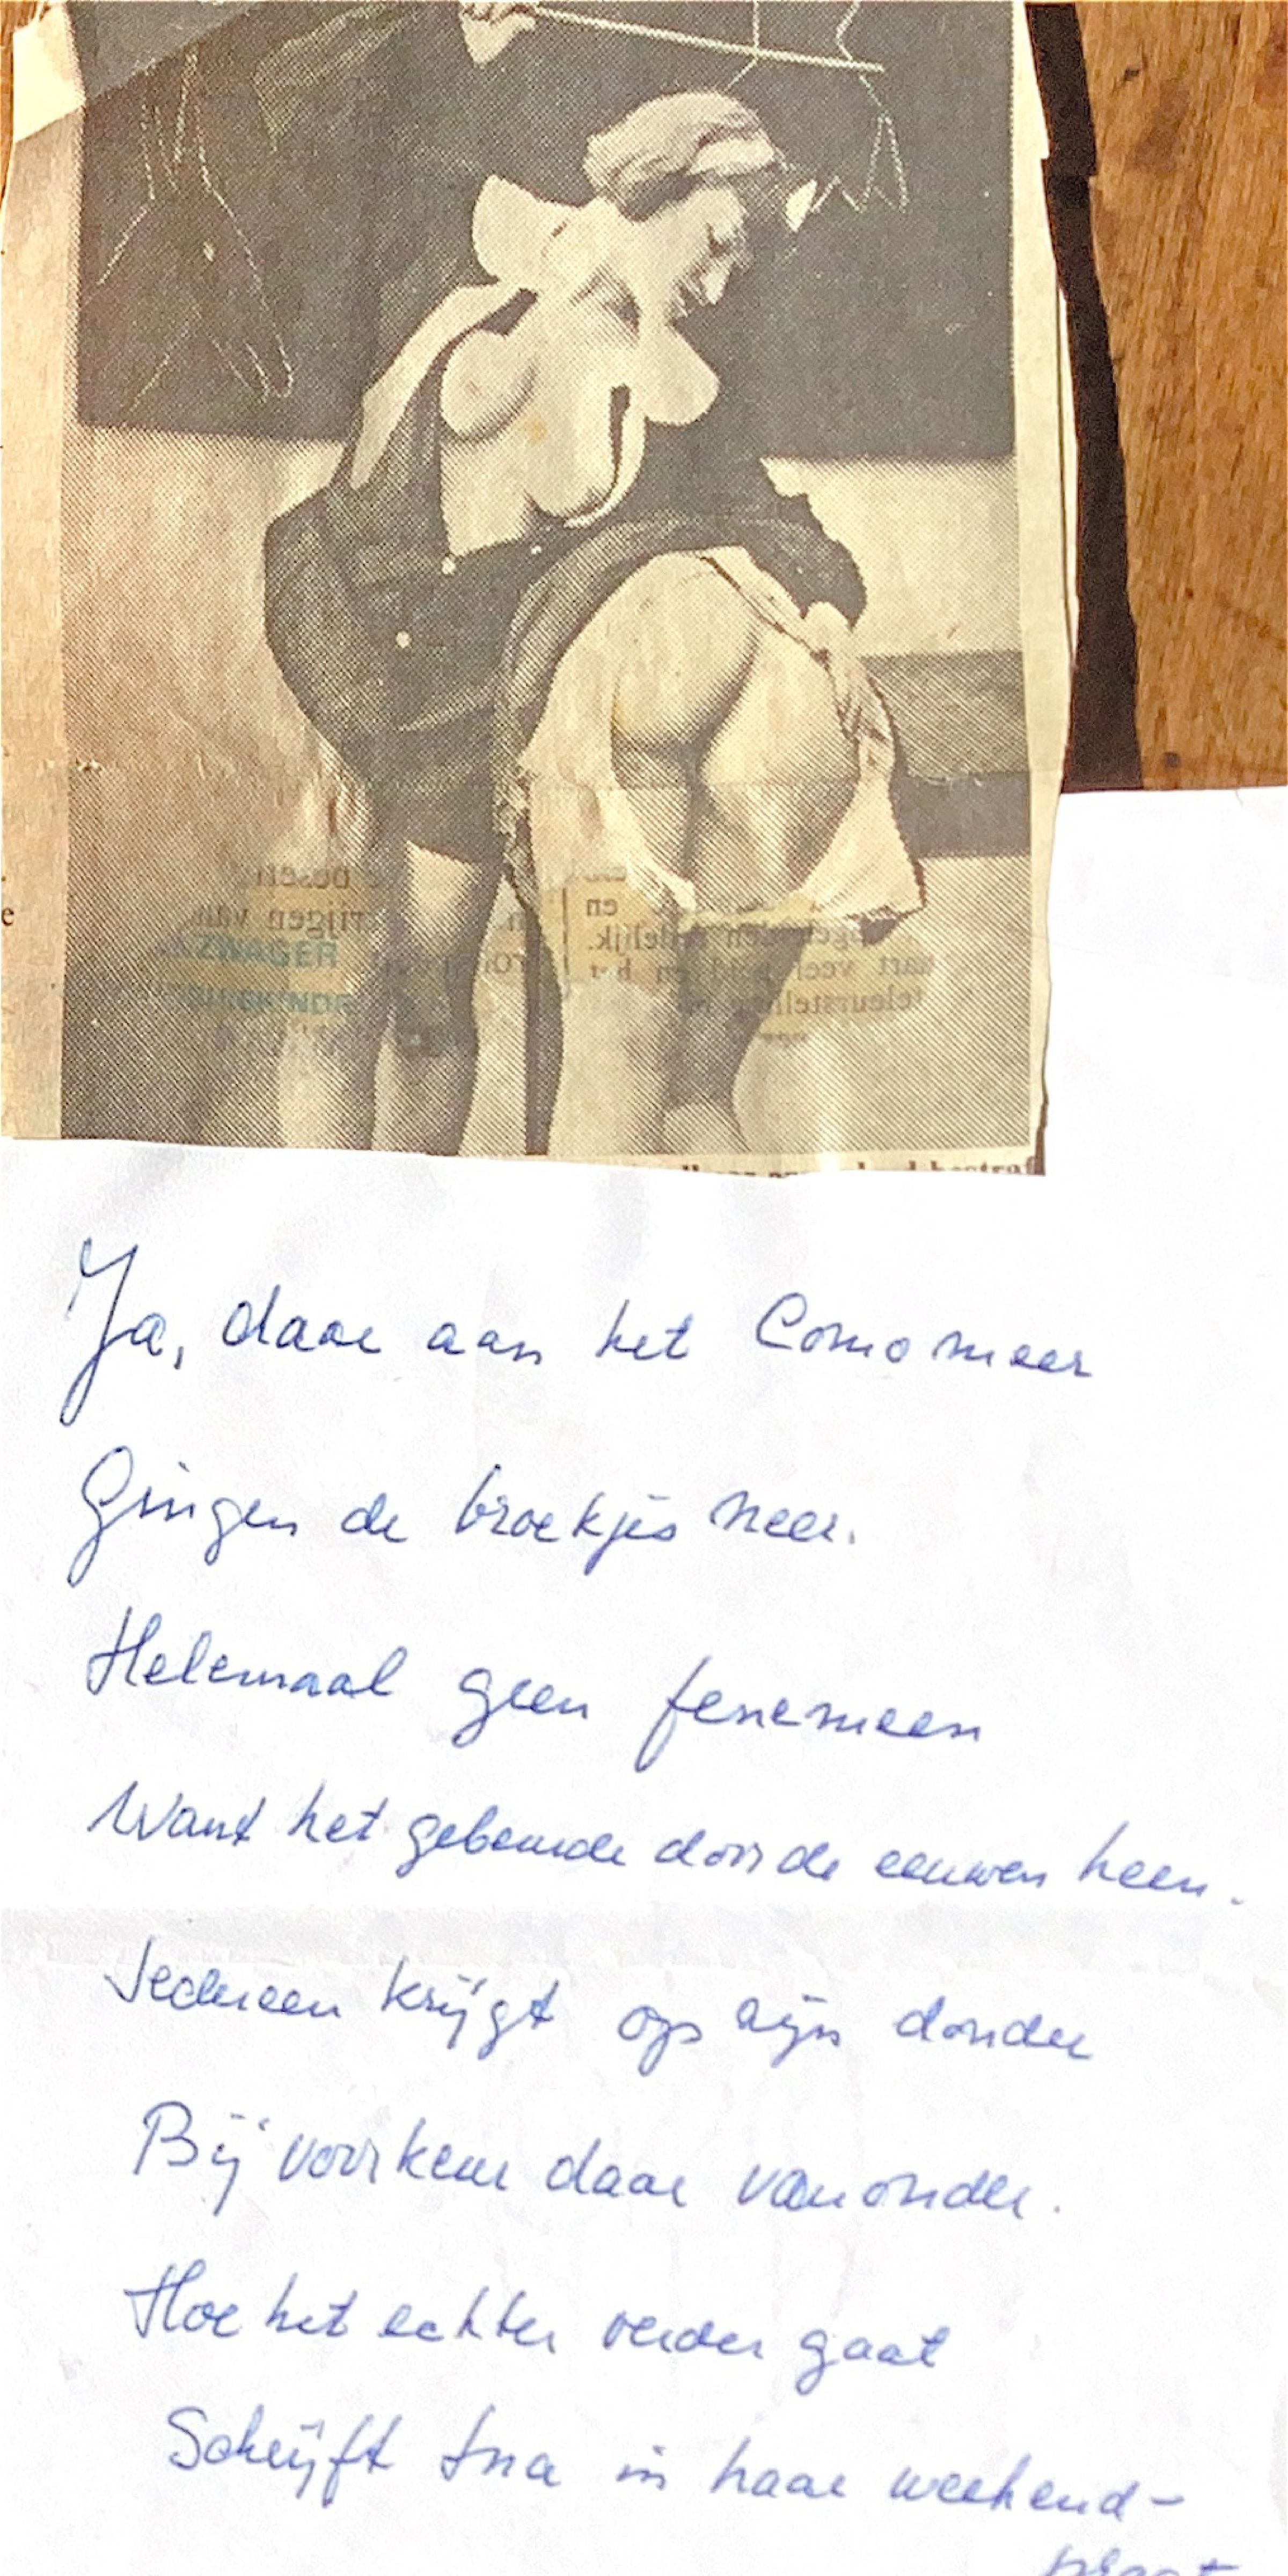 e
ZWAGER
en
teleurstelling
Ja, daar aan het Comomeer
Gingen de broekjes neer.
Helemaal geen fenemeen
Want het gebeurde door de eeuwen heen.
Iedereen krijgt op zijn donder
Bij voorkeur daar van onder.
Hoe het echter verder gaat
Schrijft Ina in haar weekend-
praat